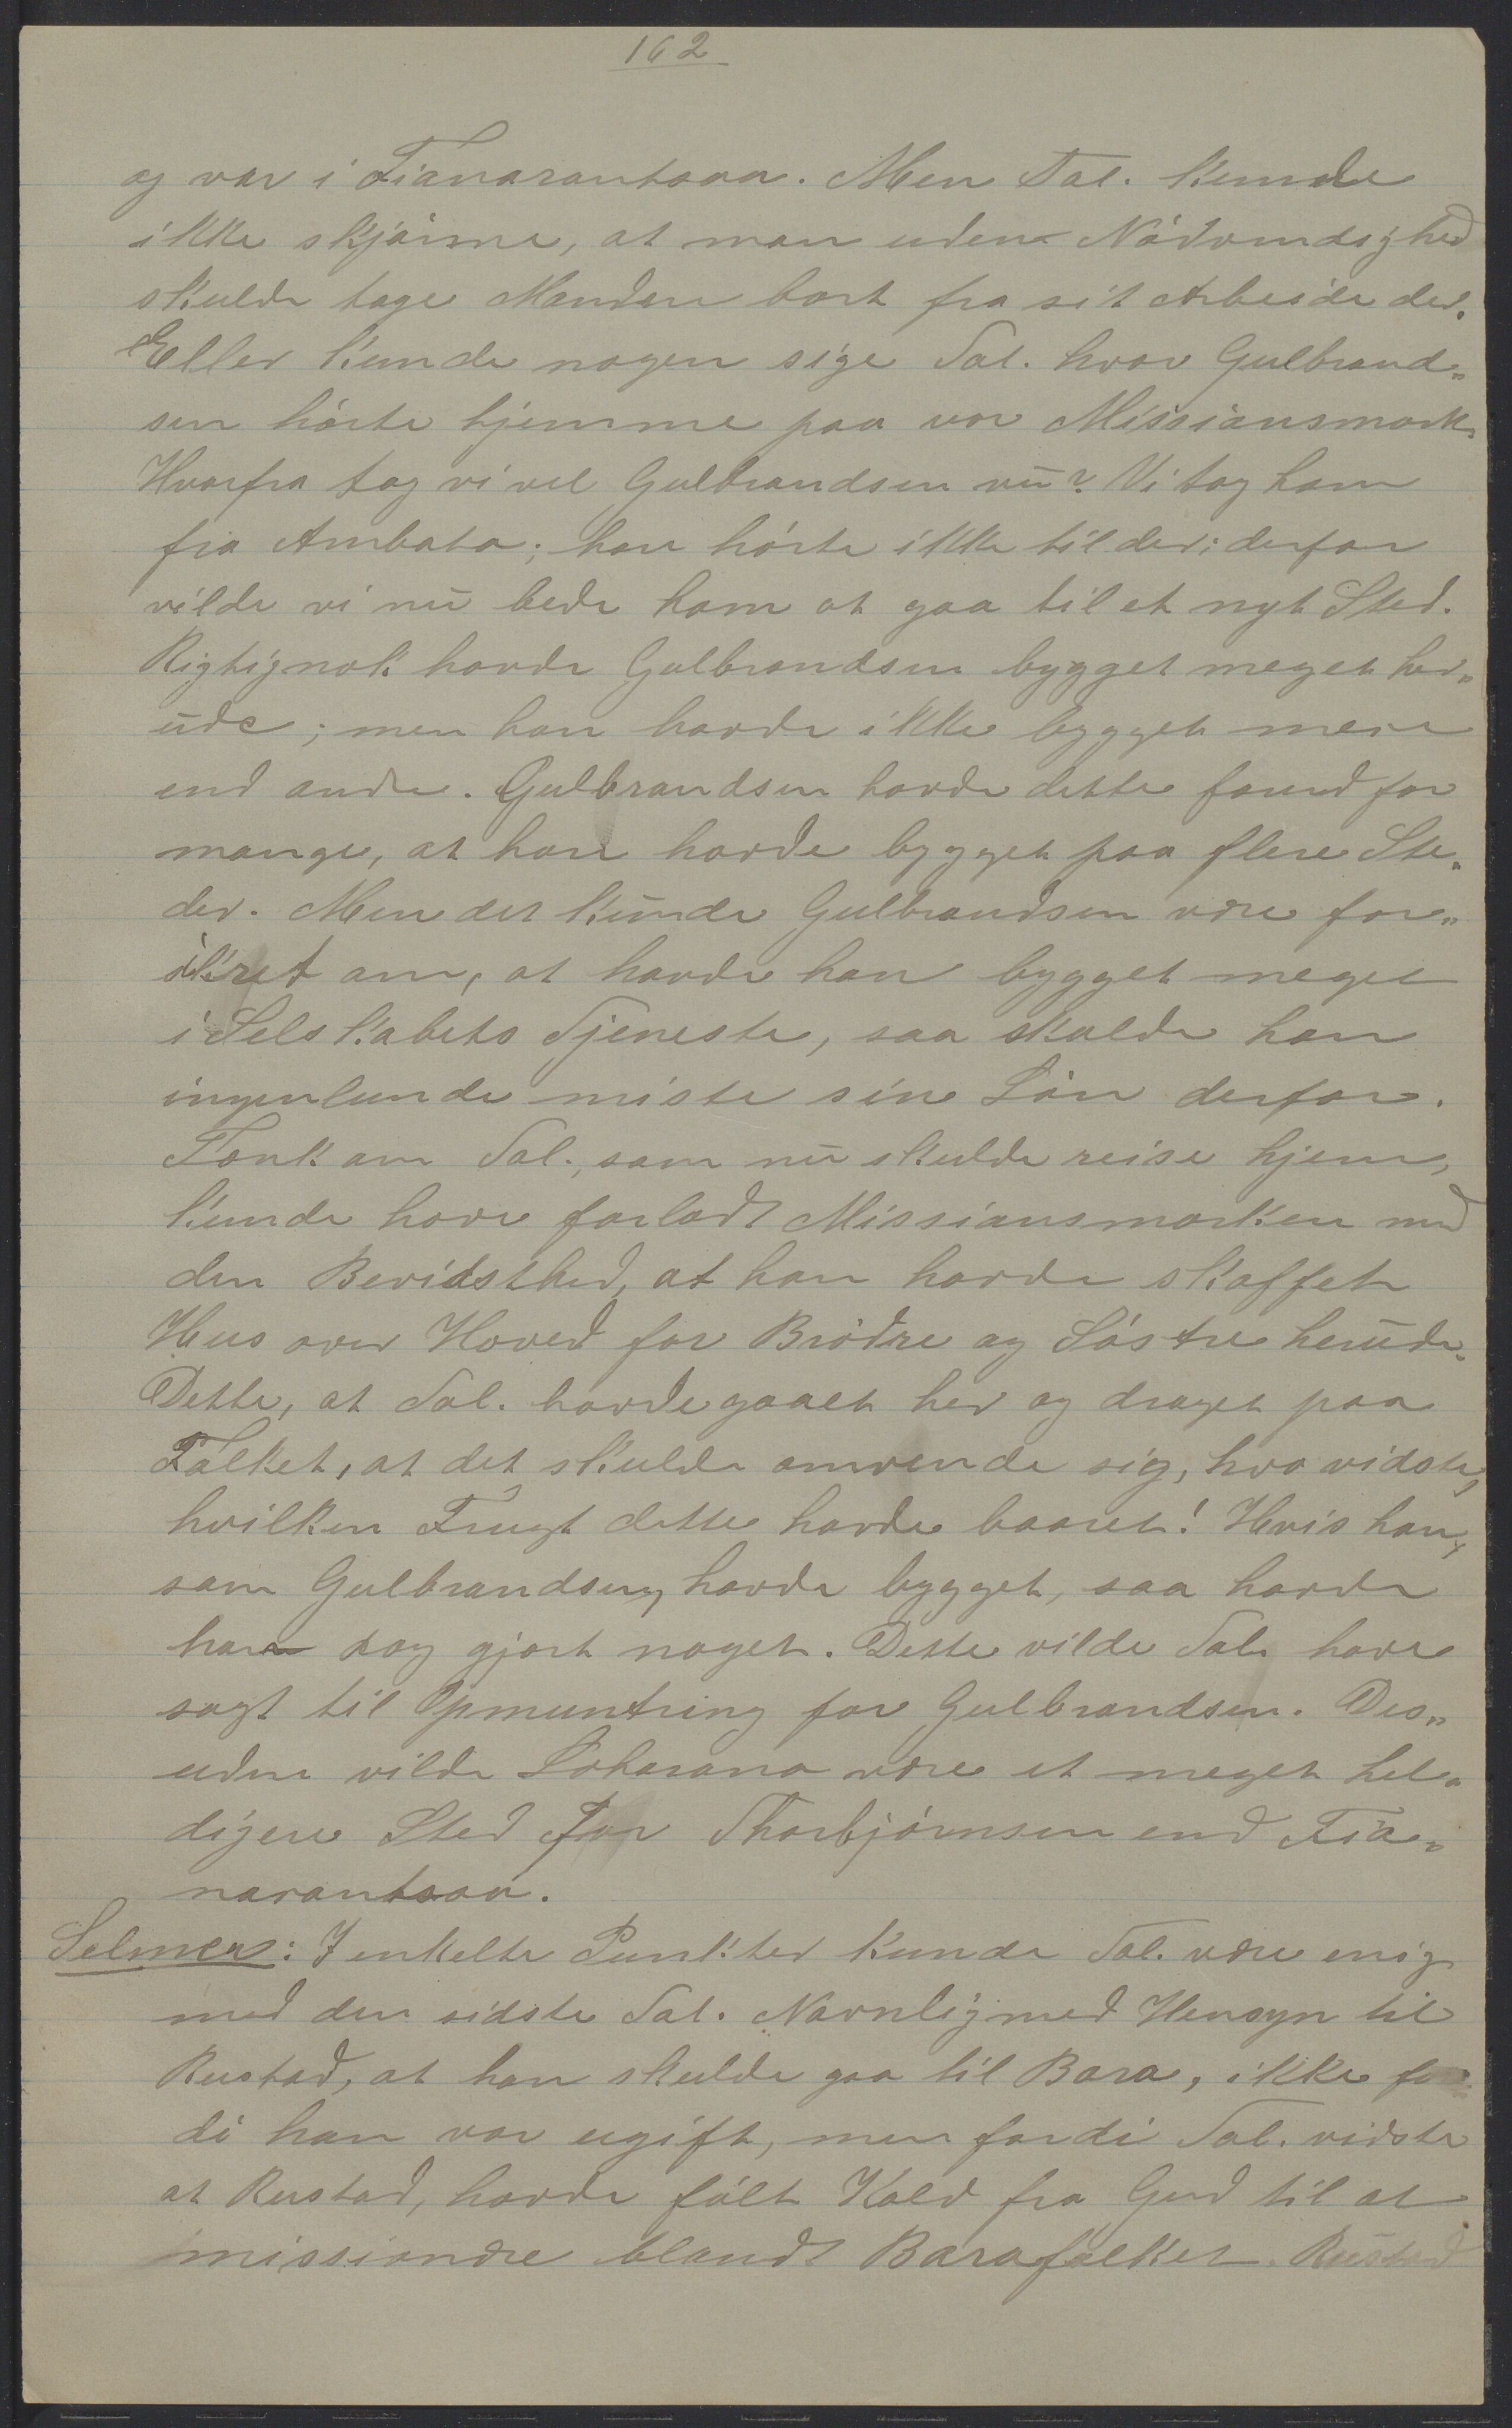 162
og var i Fianarantsoa. Men Tal. kunde
ikke skjønne, at man uden Nødvendighed
skulde tage Manden bort fra sit Arbeide der.
Eller kunde nogen sige Tal. hvor Gulbrand„
sen hørte hjemme paa vor Missionsmark.
Hvorfra tog vi vel Gulbrandsen nu? Vi tog ham
fra Ambato; han hørte ikke til der; derfor
vilde vi nu bede ham at gaa til et nyt Sted.
Rigtignok havde Gulbrandsen bygget meget her„
ude; men han havde ikke bygget mere
end andre. Gulbrandsen havde dette forud for
mange, at han havde bygget paa flere Ste„
der. Men det kunde Gulbrandsen være for„
sikret om, at havde han bygget meget
i Selskabets Tjeneste, saa skulde han
ingenlunde miste sin Løn derfor.
Tænk om Tal., som nu skulde reise hjem,
kunde have forladt Missionsmarken med
den Bevidsthed, at han havde skaffet
Hus over Hoved for Brødre og Søstre herude.
Dette, at Tal. havde gaaet her og draget paa
Folket, at det skulde omvende sig, hvo vidste,
hvilken Frugt dette havde baaret! Hvis han,
som Gulbrandsen, havde bygget, saa havde
han dog gjort noget. Dette vilde Tal. have
sagt til Opmuntring for Gulbrandsen. Des„
uden vilde Soharano være et meget hel„
digere Sted for Thorbjørnsen end Fia„
narantsoa.
Selmer: I enkelte Punkter kunde Tal. være enig
med den sidste Tal. Navnlig med Hensyn til
Rustad, at han skulde gaa til Bara, ikke for
di han var ugift, men fordi Tal. vidste
at Rustad, havde følt Kald fra Gud til at
missionere blandt Barafolket. Rustad